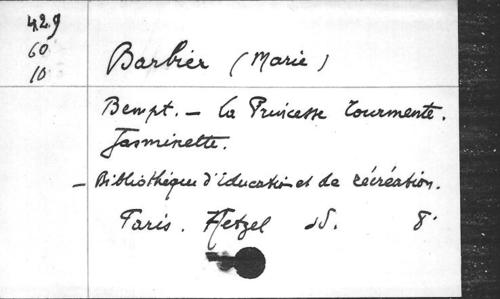 429
60
10
Barbier (Marie)
Bempt. — La Princesse Tourmente.
Jasminette.
— Bibliothèque d'éducation et de récréation.
Paris. Hetzel sd. 8°